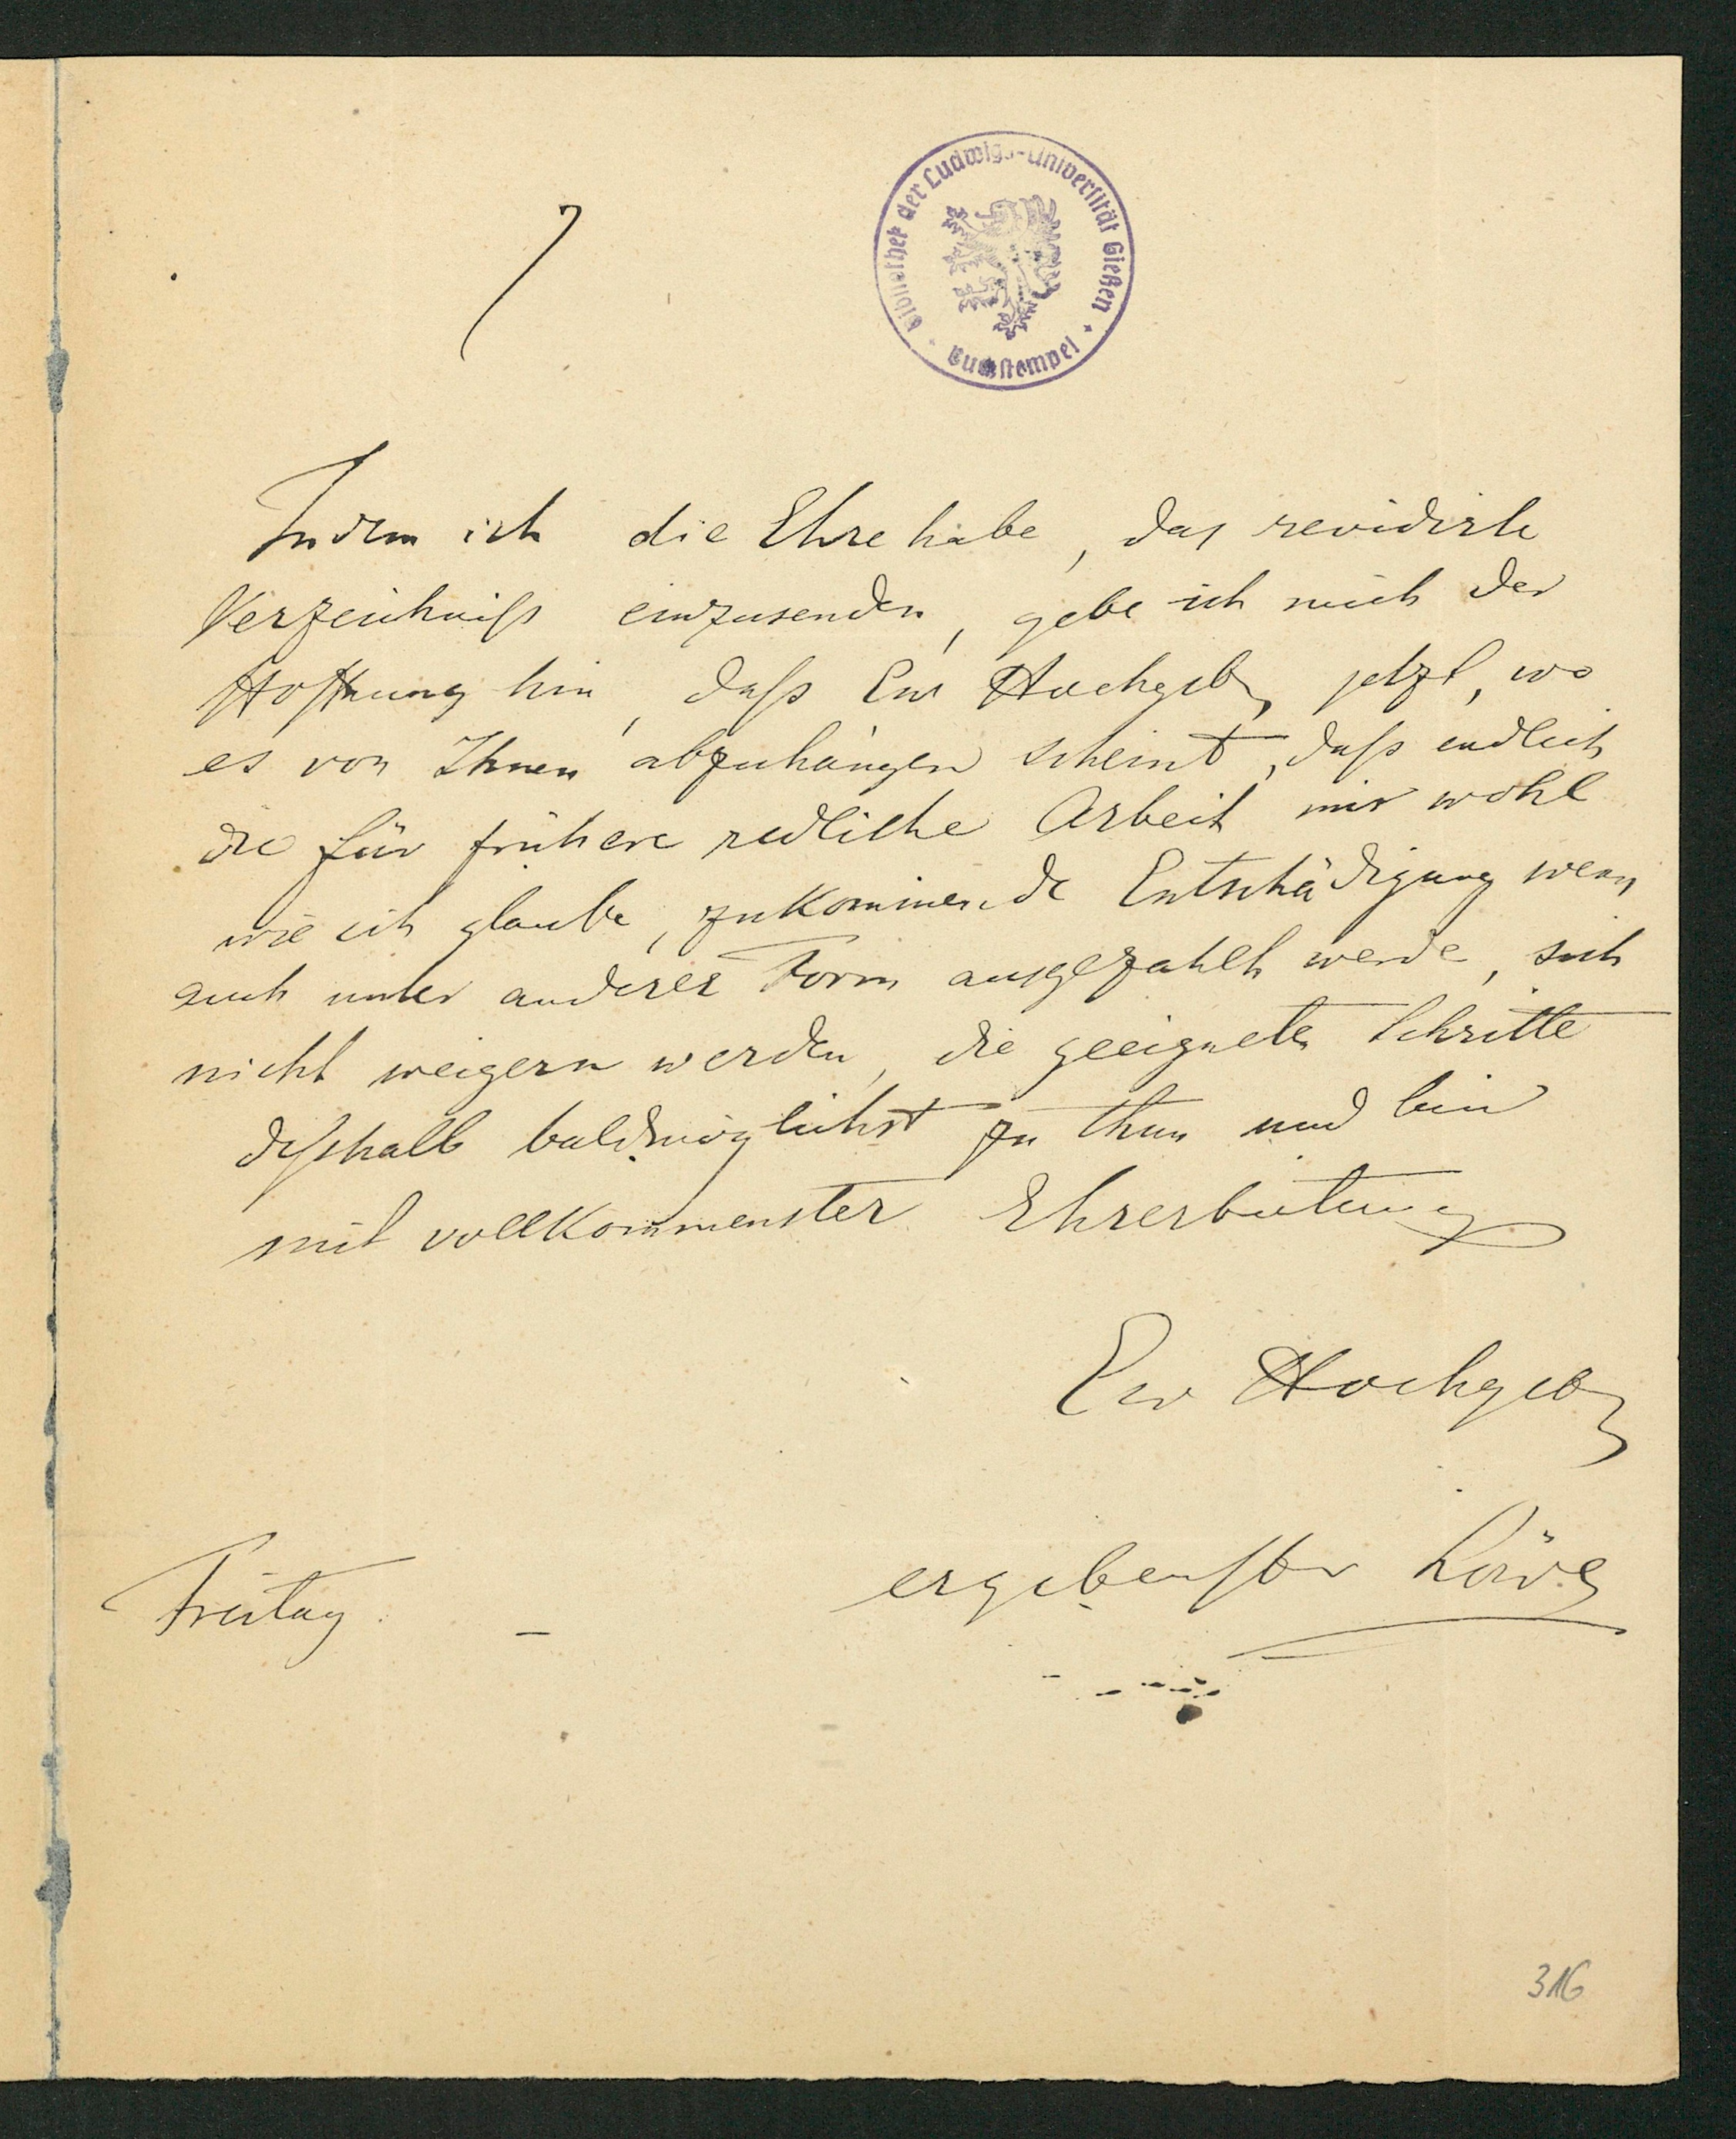 Bibliothek der Ludwigs-Universität Gießen
Buchstempel
Indem ich die Ehre habe, das revidirte
Verzeichniß einzusenden, gebe ich mich der
Hoffnung hin, daß Ew Hochgeb, jetzt, wo
es von Ihnen abzuhängen scheint, daß endlich
die für frühere redliche Arbeit mir wohl
wie ich glaube, zukommende Entschädigung wenn
auch unter anderer Form ausgezahlt werde, sich
nicht weigern werden, die geeigneten Schritte
deßhalb baldmöglichst zu thun und bin
mit vollkommenster Ehrerbietung
Ew Hochgeb
ergebenster
Freitag.
316